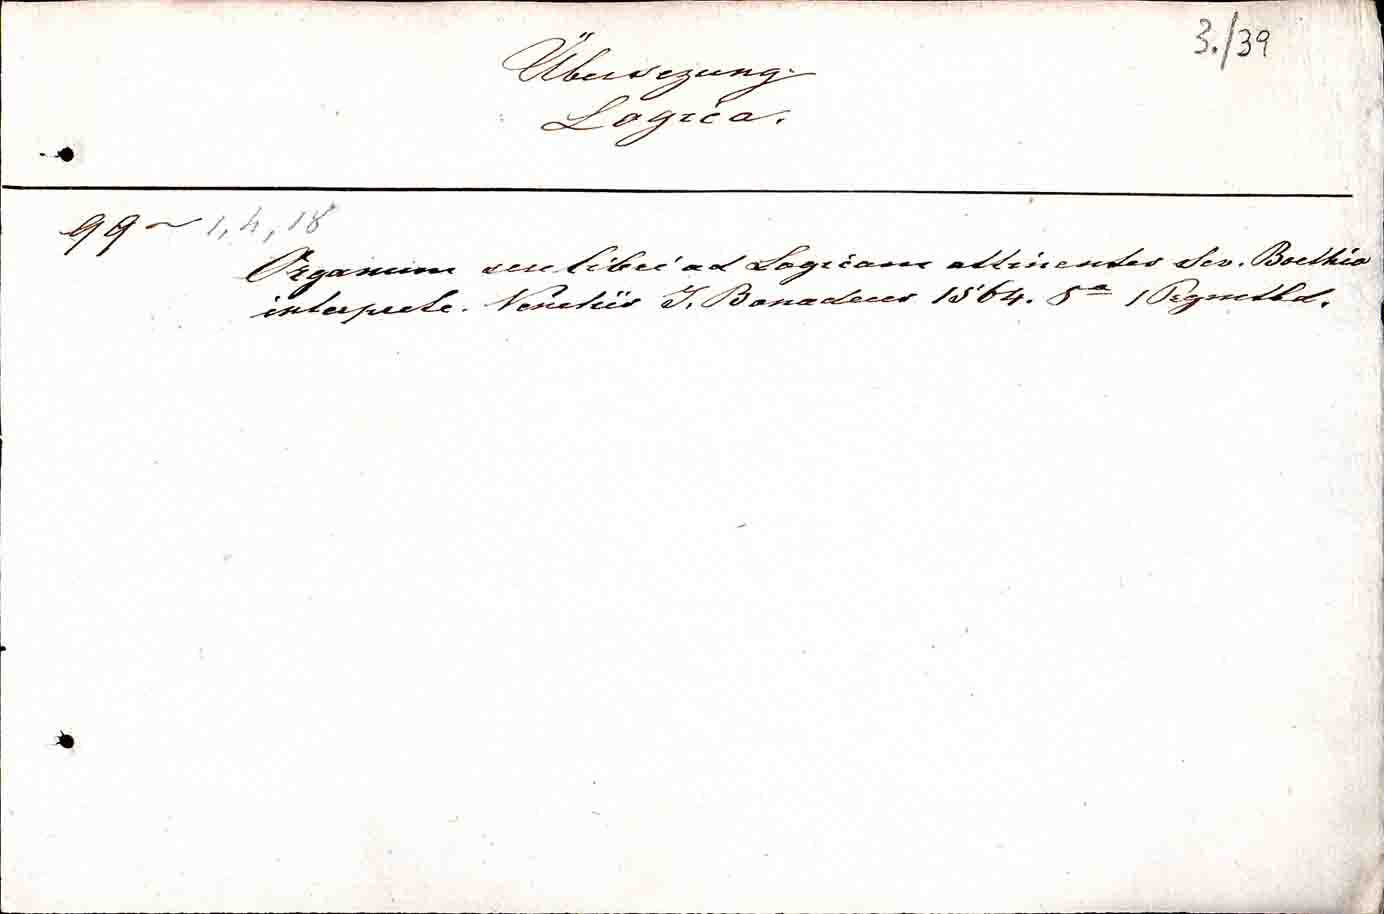 3./39
Übersezung.
Logica.
99 ~ 1, 4, 18
Organum seu libri ad Logicam attinentes Sev. Boethio
interprete. Venetiis J. Bonadeus 1564. 8° 1 Prgmtbd.